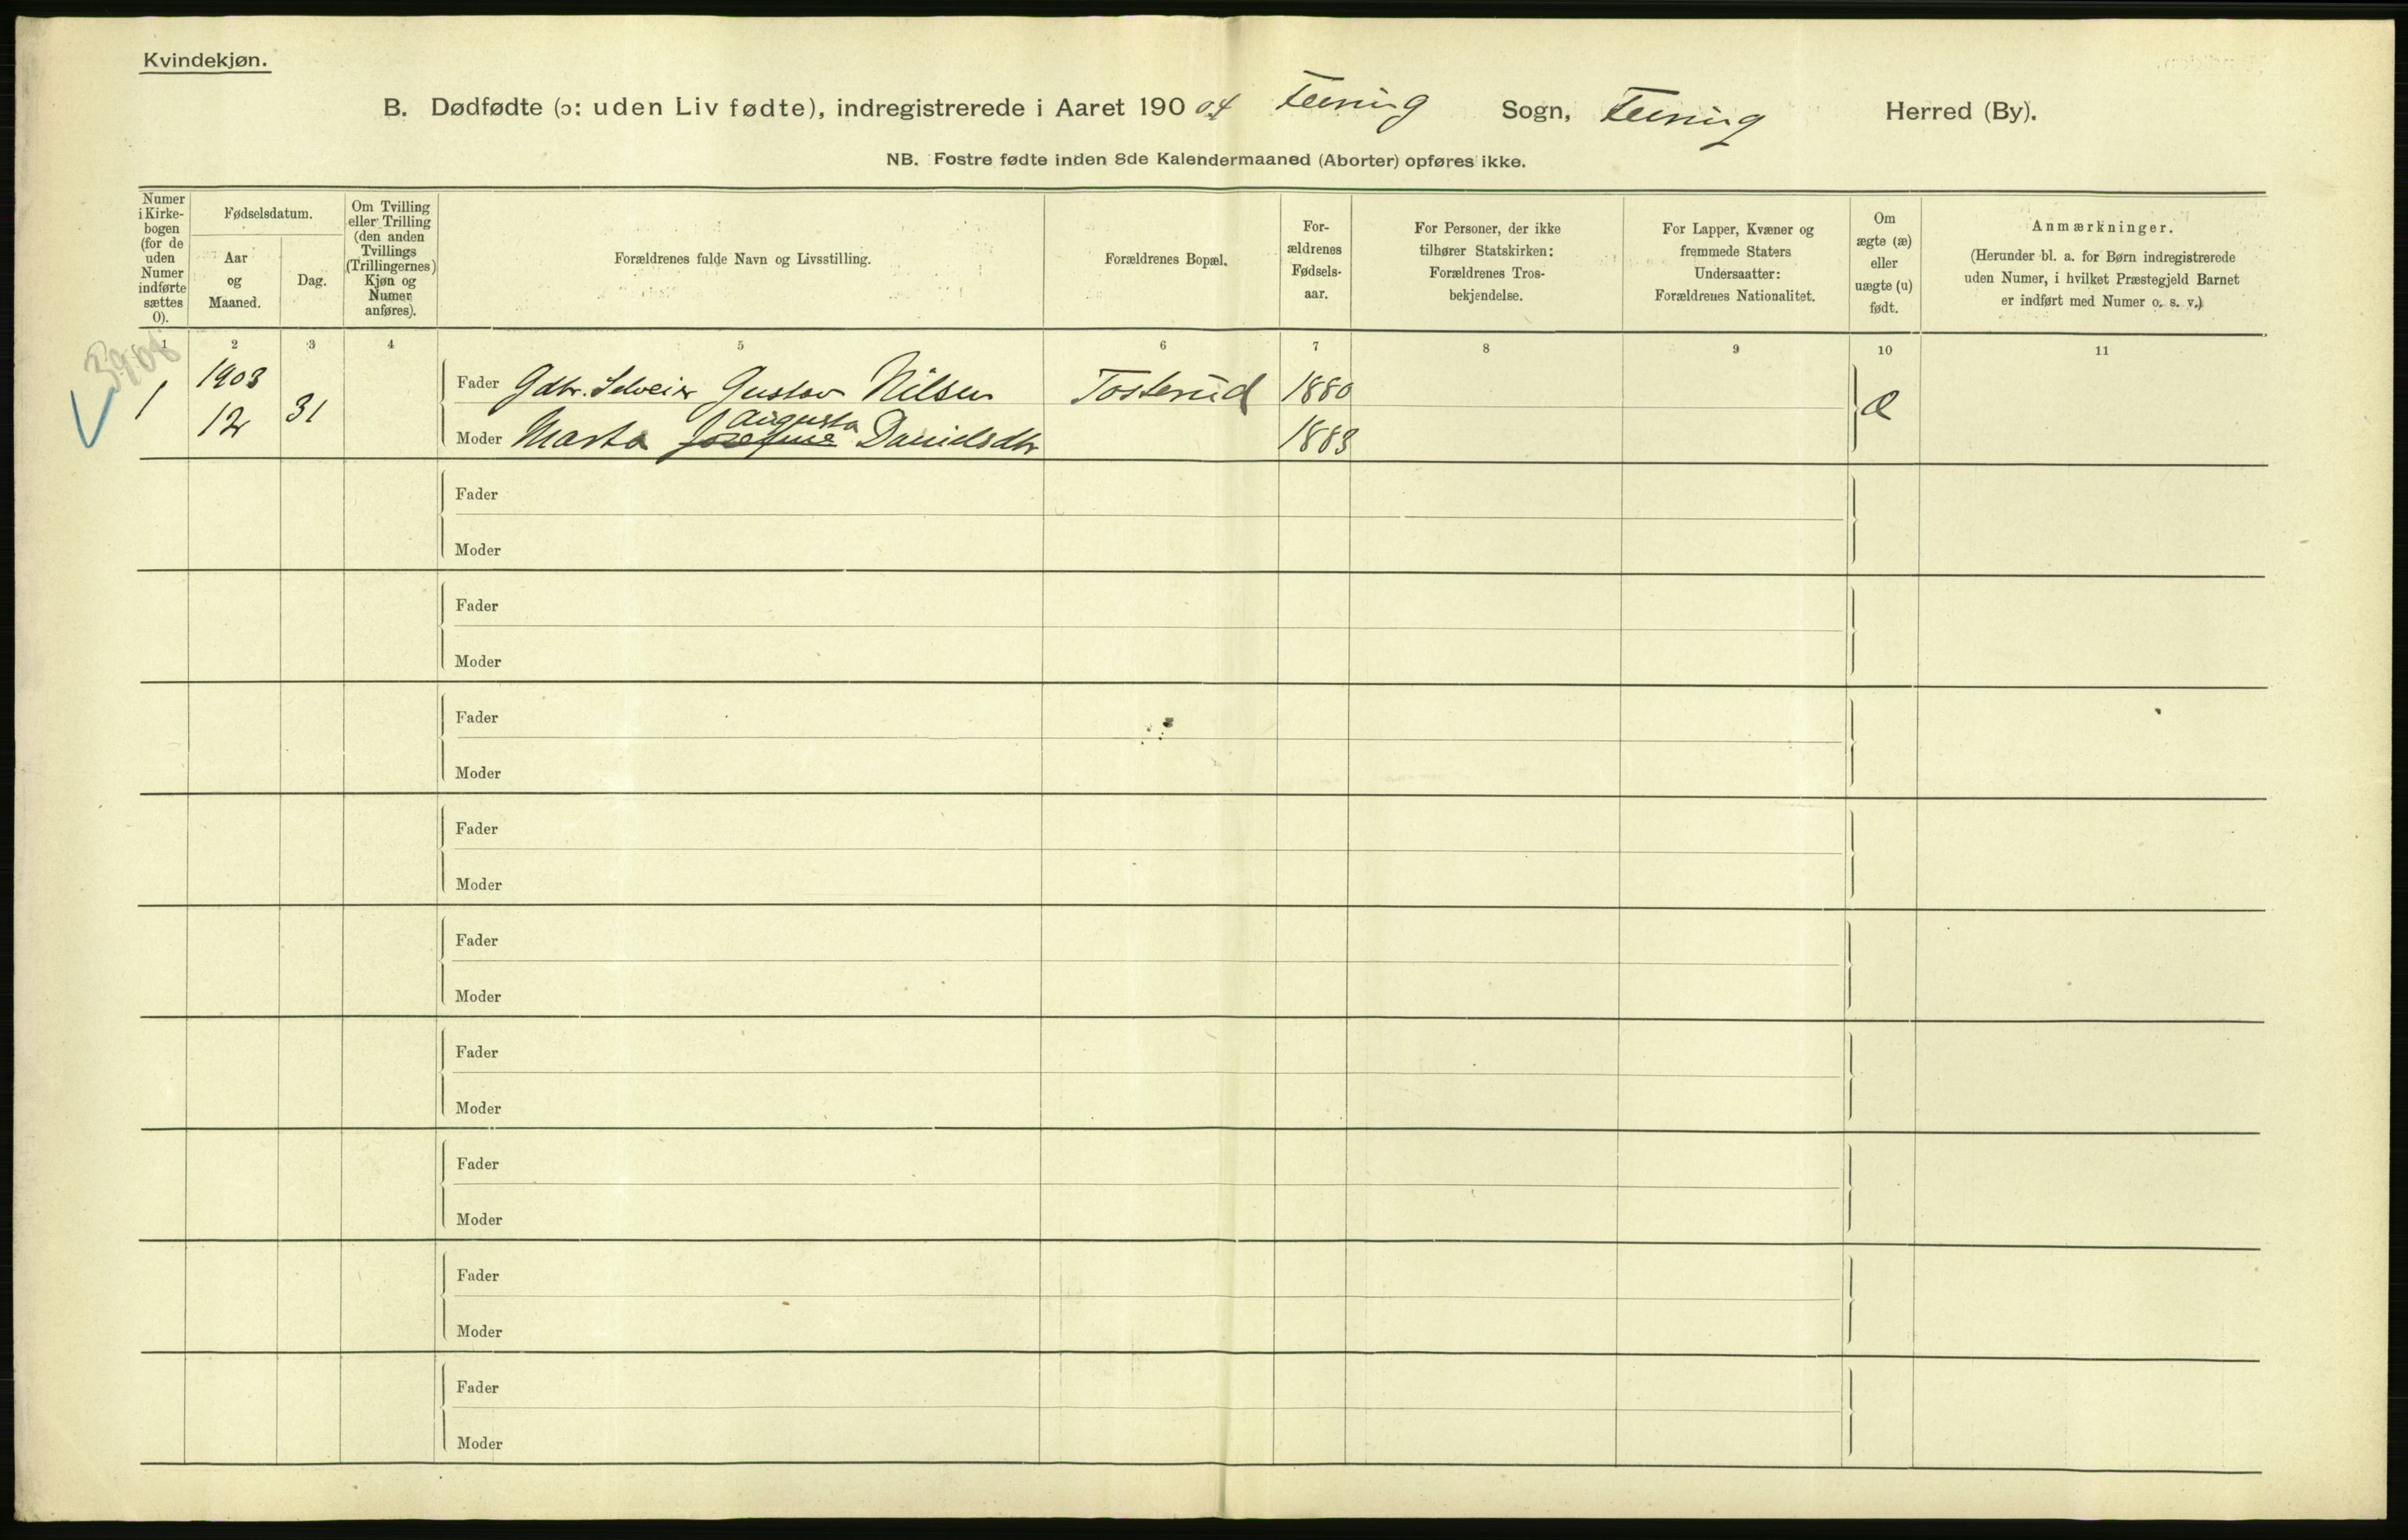 Kvindekjøn.
B. Dødfødte (ɔ: uden Liv fødte), indregistrerede i Aaret 190 04 Feiring Sogn, Feiring Herred (By).
NB. Fostre fødte inden 8de Kalendermaaned (Aborter) opføres ikke.
Numer i Kirke-bogen (for de uden Numer indførte sættes 0).
Fødselsdatum.
Aar og Maaned.
Dag.
Om Tvilling eller Trilling (den anden Tvillings (Trillingernes) Kjøn og Numer anføres).
Forældrenes fulde Navn og Livsstilling.
Forældrenes Bopæl.
For-ældrenes Fødsels-aar.
For Personer, der ikke tilhører Statskirken: Forældrenes Tros-bekjendelse.
For Lapper, Kvæner og fremmede Staters Undersaatter: Forældrenes Nationalitet.
Om ægte (æ) eller uægte (u) født.
Anmærkninger.
(Herunder bl. a. for Børn indregistrerede uden Numer, i hvilket Præstegjeld Barnet er indført med Numer o. s. v.)
1 2 3 4 5 6 7 8 9 10 11
3908
1 1903 12 31
Fader Gdbr. Selveier Gustav Nilsen Tosterud 1880 æ
Augusta
Moder Marta Josefine Danielsdtr 1883
Fader
Moder
Fader
Moder
Fader
Moder
Fader
Moder
Fader
Moder
Fader
Moder
Fader
Moder
Fader
Moder
Fader
Moder